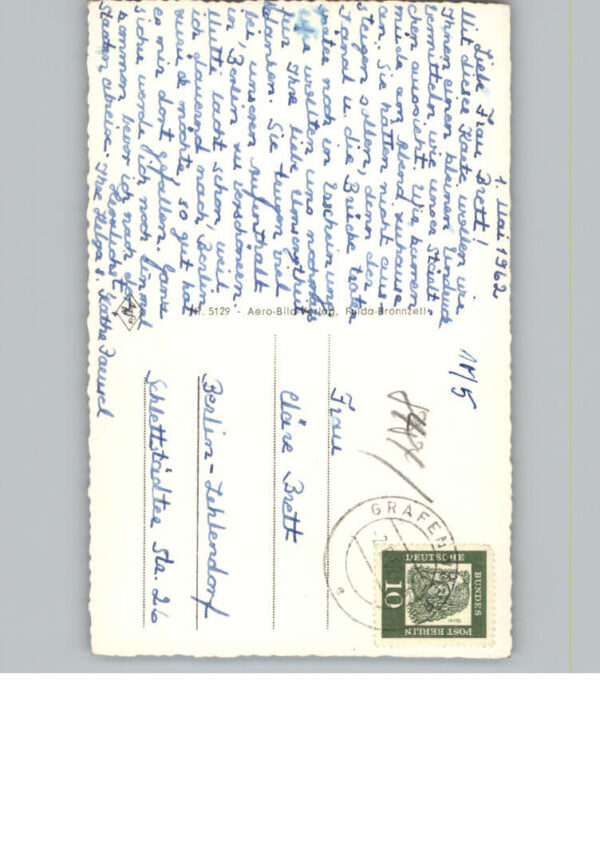 1. Mai 1962
Liebe Frau Brett!
Mit dieser Karte wollen wir
Ihnen einen kleinen Eindruck
vermitteln, wie unser Städt-
chen aussieht. Wir kamen
müde am Abend zuhause
an. Sie hatten nicht aus-
steigen sollen, denn der
Kanal u. die Brücke traten
später noch in Erscheinung
wollten uns nochmals
für Ihre liebe
bedanken. Sie trugen viel
bei, unseren Aufenthalt
in Berlin zu verschönern.
Mutti lacht schon, weil
ich dauernd nach Berlin
zurück möchte, so gut hat
es mir dort gefallen. Ganz
sicher werde ich noch einmal
kommen bevor ich nach den
Staaten abreise. Herzlichst,
Ihre Helga & Käthe
Nr. 5129 - Aero-Bild-Verlag, Fulda-Bronnzell
Agfa
1M/5
Frau
Cläre Brett
Berlin-Zehlendorf
Schlettstädter Str. 26
GRAFEN
DEUTSCHE
BUNDES
POST BERLIN
10